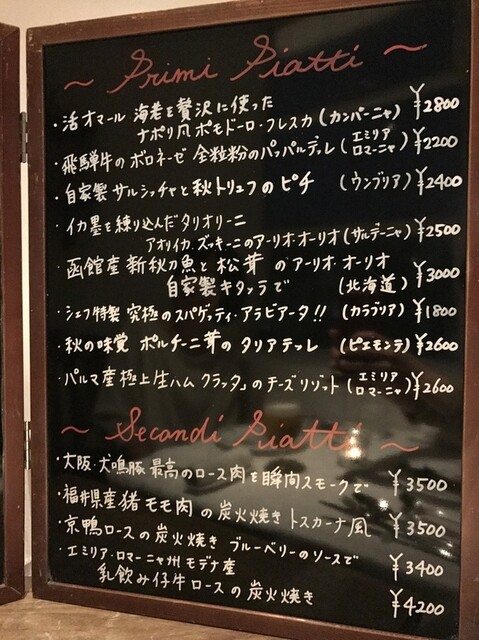 ~ Primi Piatti ~
・活オマール海老を贅沢に使った
ナポリ風ポモドーロ・フレスカ (カンパーニャ) ¥2800
・飛騨牛のボロネーゼ 全粒粉のパッパルデッレ (エミリア ロマーニャ) ¥2200
・自家製サルシッチャと秋トリュフのピチ (ウンブリア) ¥2400
・イカ墨を練り込んだタリオリーニ
アオリイカ、ズッキーニのアーリオ・オーリオ (サルデーニャ) ¥2500
・函館産新秋刀魚と松茸のアーリオ・オーリオ
自家製キタッラで (北海道) ¥3000
・シェフ特製 究極のスパゲッティ・アラビアータ!! (カラブリア) ¥1800
・秋の味覚 ポルチーニ茸のタリアテッレ (ピエモンテ) ¥2600
・パルマ産極上生ハム クラッタ」のチーズリゾット (エミリア ロマーニャ) ¥2600
~ Secondi Piatti ~
・大阪・犬鳴豚 最高のロース肉を瞬間スモークで ¥3500
・福井県産猪モモ肉の炭火焼き トスカーナ風 ¥3500
・京鴨ロースの炭火焼き ブルーベリーのソースで ¥3400
・エミリア・ロマーニャ州 モデナ産
乳飲み仔牛ロースの炭火焼き ¥4200